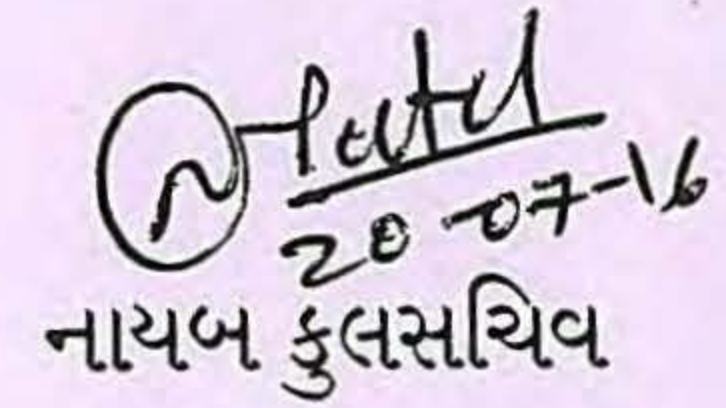 Patel
20-07-16
નાયબ કુલસચિવ